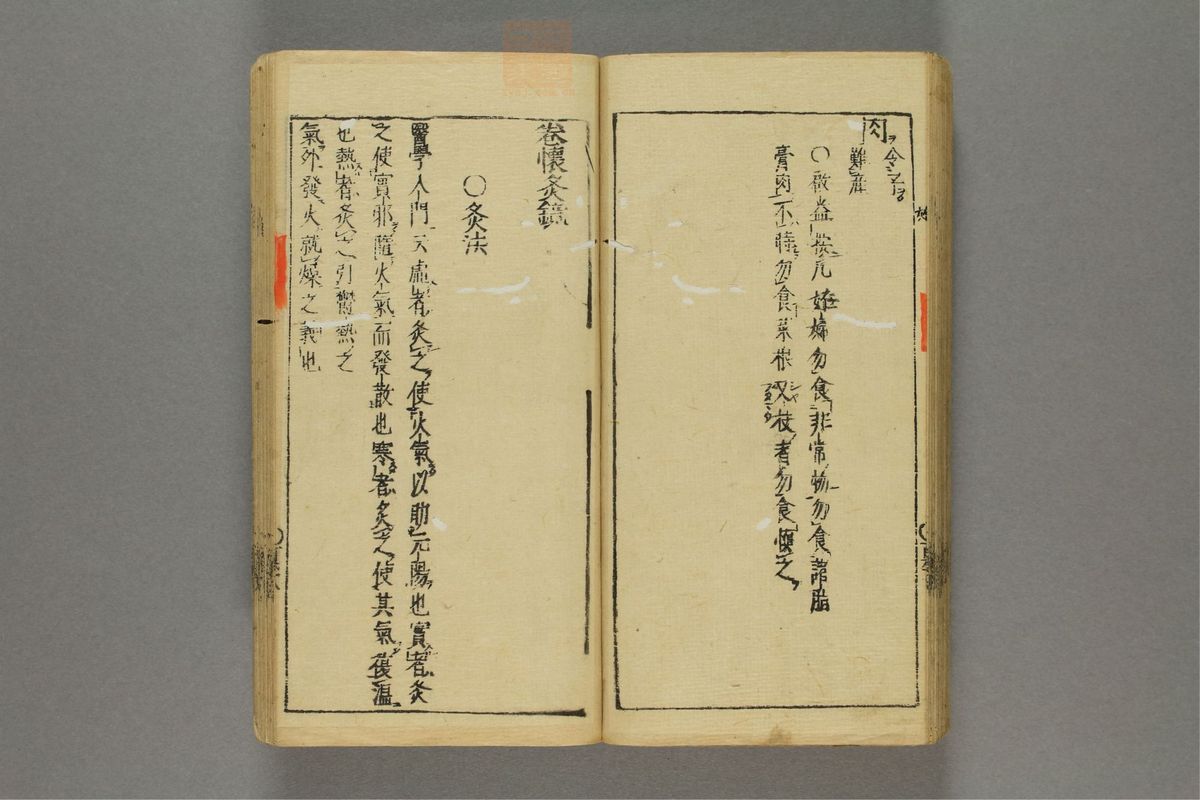 肉ヲ令ユル
難産
〇啟益按凡妊婦勿食非常物勿食諸脂
膏肉不時勿食菜根双枝者勿食慎之
卷懷灸鏡
〇灸法
醫學入門云虛者灸之使火氣以助元陽也實者灸
之使實邪隨火氣而發散也寒者灸之使其氣復溫
也熱者灸之引鬱熱之
氣外發火就燥之義也